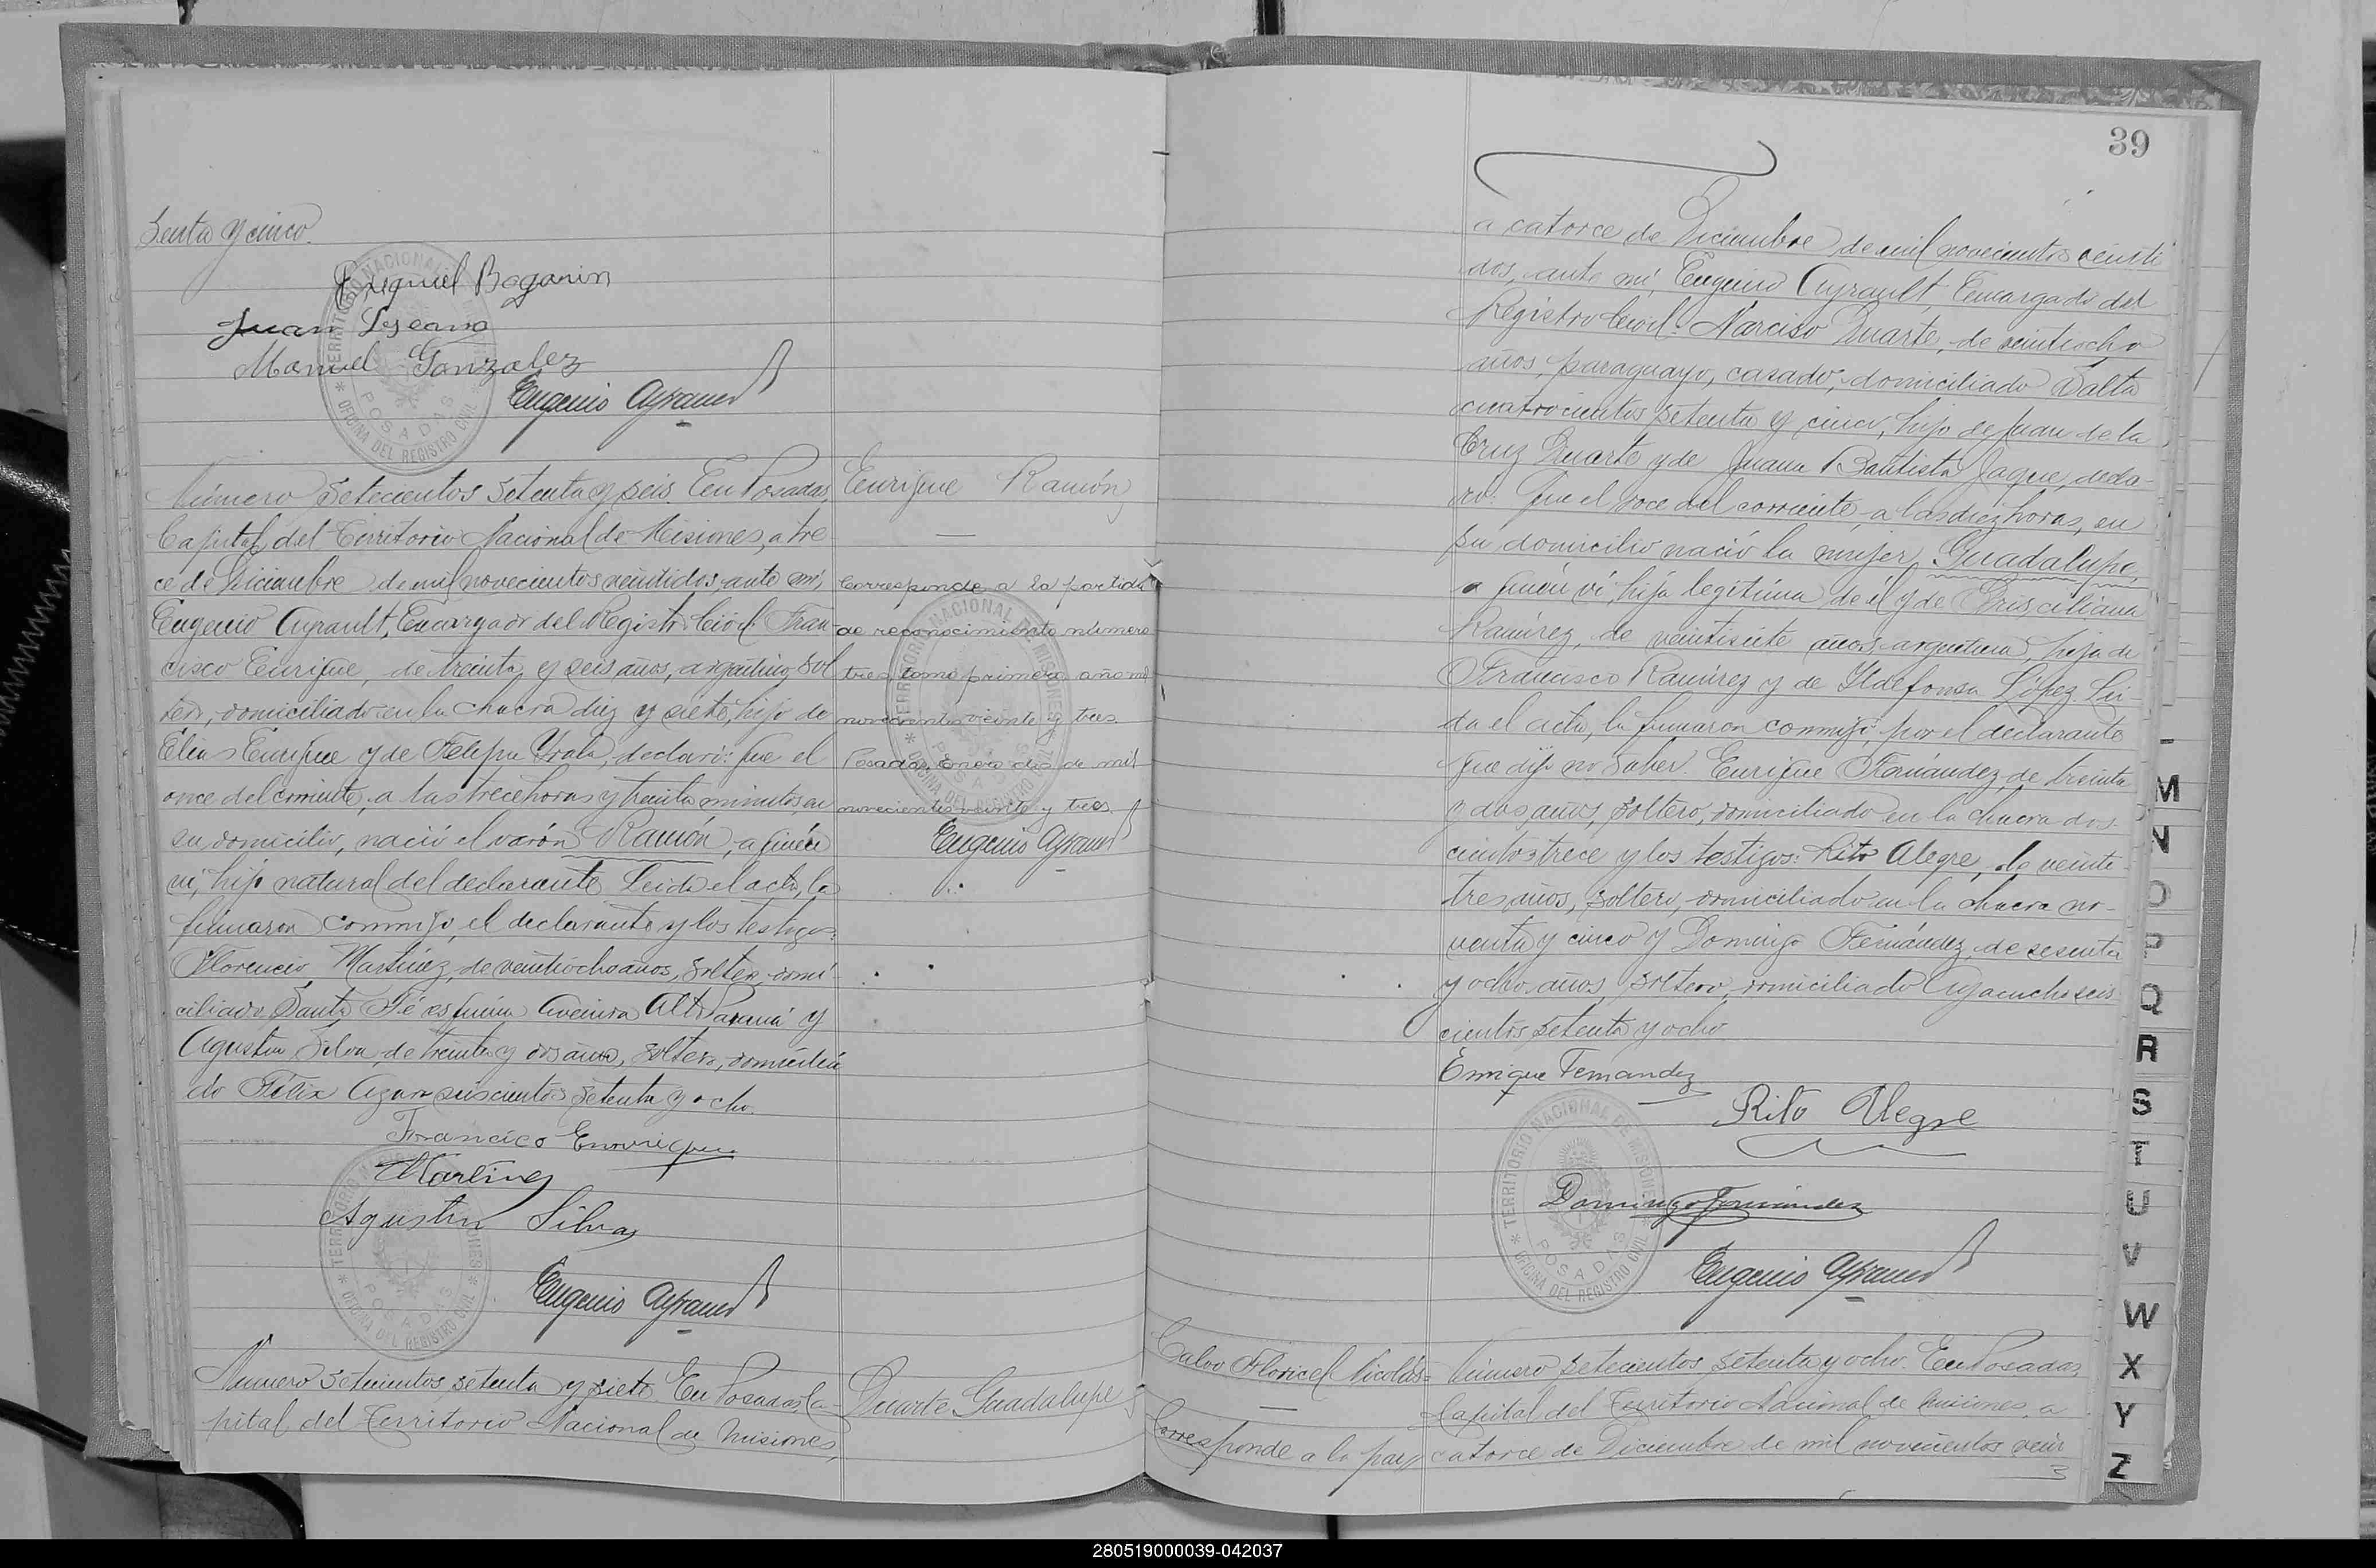 senta y cinco.
Ezequiel Bogarin
Juan Lezcano
Manuel Gonzalez
Eugenio Ayrault
TERRITORIO NACIONAL DE MISIONES
POSADAS
OFICINA DEL REGISTRO CIVIL
Enrique Ramón
—
Corresponde a la partida
de reconocimiento número
tres, tomo primero, año mil
novecientos veinte y tres.
Posadas, Enero dos de mil
novecientos veinte y tres.
Eugenio Ayrault
Número setecientos setenta y seis. En Posadas,
Capital del Territorio Nacional de Misiones, a tre
ce de Diciembre de mil novecientos veintidos, ante mí,
Eugenio Ayrault, Encargado del Registro Civil: Fran-
cisco Enrique, de treinta y seis años, argentino, sol
tero, domiciliado en la chacra diez y siete, hijo de
Elías Enrique y de Felipa, declaró: Que el
once del corriente, a las trece horas y treinta minutos, en
su domicilio, nació el varón Ramón, a quién
ví, hijo natural del declarante. Leida el acta, la
firmaron conmigo, el declarante y los testigos:
Florencio Martínez, de veintiocho años, soltero, domi-
ciliado Santa Fé esquina Avenida Alto Paraná y
Agustín Silva, de treinta y dos años, soltero, domicilia
do Félix Azara seiscientos setenta y ocho.
Francico Enrrique
Martinez
Agustin Silva
Eugenio Ayrault
TERRITORIO NACIONAL DE MISIONES
POSADAS
OFICINA DEL REGISTRO CIVIL
Número setecientos setenta y siete. En Posadas, Ca-
pital del Territorio Nacional de Misiones,
Duarte Guadalupe
39
a catorce de Diciembre de mil novecientos veinti
dos, ante mí, Eugenio Ayrault, Encargado del
Registro Civil: Narciso Duarte, de veintiocho
años, paraguayo, casado, domiciliado Salta
cuatrocientos setenta y cinco, hijo de Juan de la
Cruz Duarte y de Juana Bautista Jaque, decla-
ró: Que el doce del corriente, a las diez horas, en
su domicilio nació la mujer Guadalupe,
a quién ví, hija legítima de él y de Prisciliana
Ramírez, de veintisiete años, argentina, hija de
Francisco Ramírez y de Ildefonsa López. Lei-
da el acta, la firmaron conmigo, por el declarante
que dijo no saber. Enrique Fernández, de treinta
y dos años, soltero, domiciliado en la chacra dos-
cientos trece y los testigos: Rito Alegre, de veinte
tres años, soltero, domiciliado en la chacra no-
venta y cinco y Domingo Fernández, de sesenta
y ocho años, soltero, domiciliado Ayacucho seis
cientos setenta y ocho
Enrique Fernandez
Rito Alegre
Domingo Fernandez
Eugenio Ayrault
TERRITORIO NACIONAL DE MISIONES
POSADAS
OFICINA DEL REGISTRO CIVIL
Calvo Floricel Nicolás
—
Corresponde a la par
Número setecientos setenta y ocho. En Posadas,
Capital del Territorio Nacional de Misiones, a
catorce de Diciembre de mil novecientos vein
M
N
O
P
Q
R
S
T
U
V
W
X
Y
Z
280519000039-042037